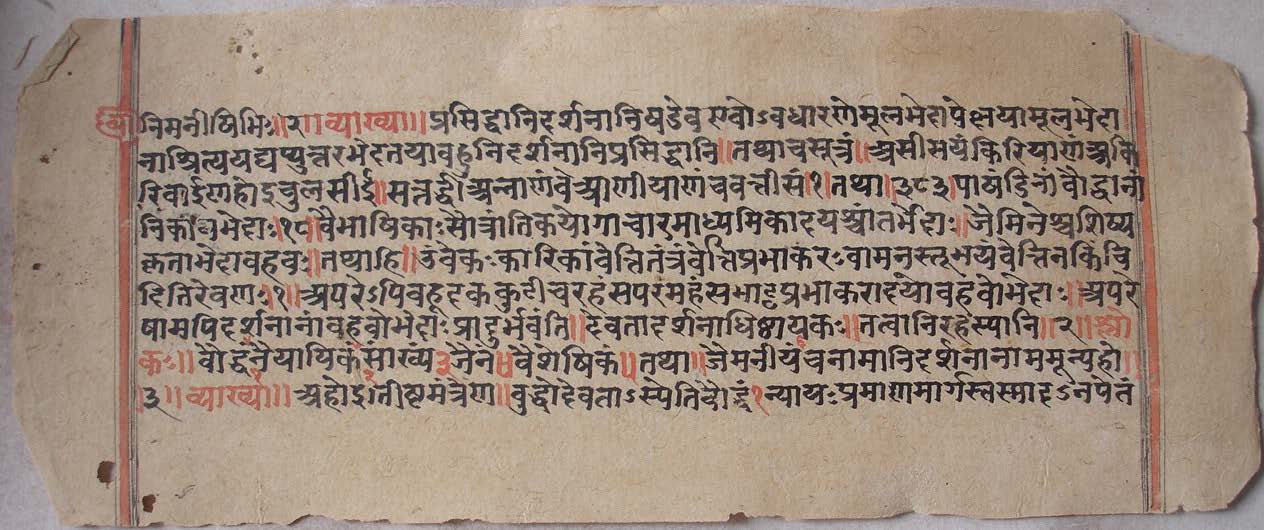 नि मनीषिभिः ॥ २ ॥ व्याख्या ॥ प्रसिद्धानि दर्शनानि षडेव एवोऽवधारणे मूलभेदापेक्षया मूलभेदा
नाश्रित्य यद्यप्युत्तरभेदतया बहूनि दर्शनानि प्रसिद्धानि ॥ तथा च सूत्रं ॥ असीसयं किरियाणं अकि
रिवाईणहोइ चुलसीई ॥ सत्तट्ठी अन्नाणं वेआणीयाणं च बत्तीसं ॥ १ ॥ तथा ॥ ३६३ ॥ पाषंडिनां बौद्धानां
निकायभेदाः ॥ १८ ॥ वैभाषिकाः सौत्रांतिकयोगाचारमाध्यमिकादयश्चांतर्भेदाः ॥ जैमिनेश्च शिष्य
कृता भेदा बहवः ॥ तथाहि ॥ उंवेकः कारिकां वेत्ति तंत्रं वेत्ति प्रभाकरः वामनस्तूभयं वेत्ति न किंचि
दिति रेवणः ॥ १ ॥ अपरेऽपि बहूदककुटीचरहंसपरमंहंसभाट्टप्रभाकरादयो बहवो भेदाः ॥ अपरे
षामपि दर्शनानां बहवो भेदाः प्रादुर्भवंति ॥ देवता दर्शनाधिष्ठायकः ॥ तत्वानि रहस्यानि ॥ २ ॥ श्लो
कः ॥ बौद्धं नैयायिकं सांख्यं ३ जैनं ४ वैशेषिकं ५ तथा ॥ जैमनीयं च नामानि दर्शनानाममून्यहो
३ ॥ व्याख्या ॥ अहो इतीष्टमंत्रण ॥ बुद्धो देवताऽस्येति बौद्धं १ न्यायः प्रमाणमार्गस्तस्मादऽनपेतं